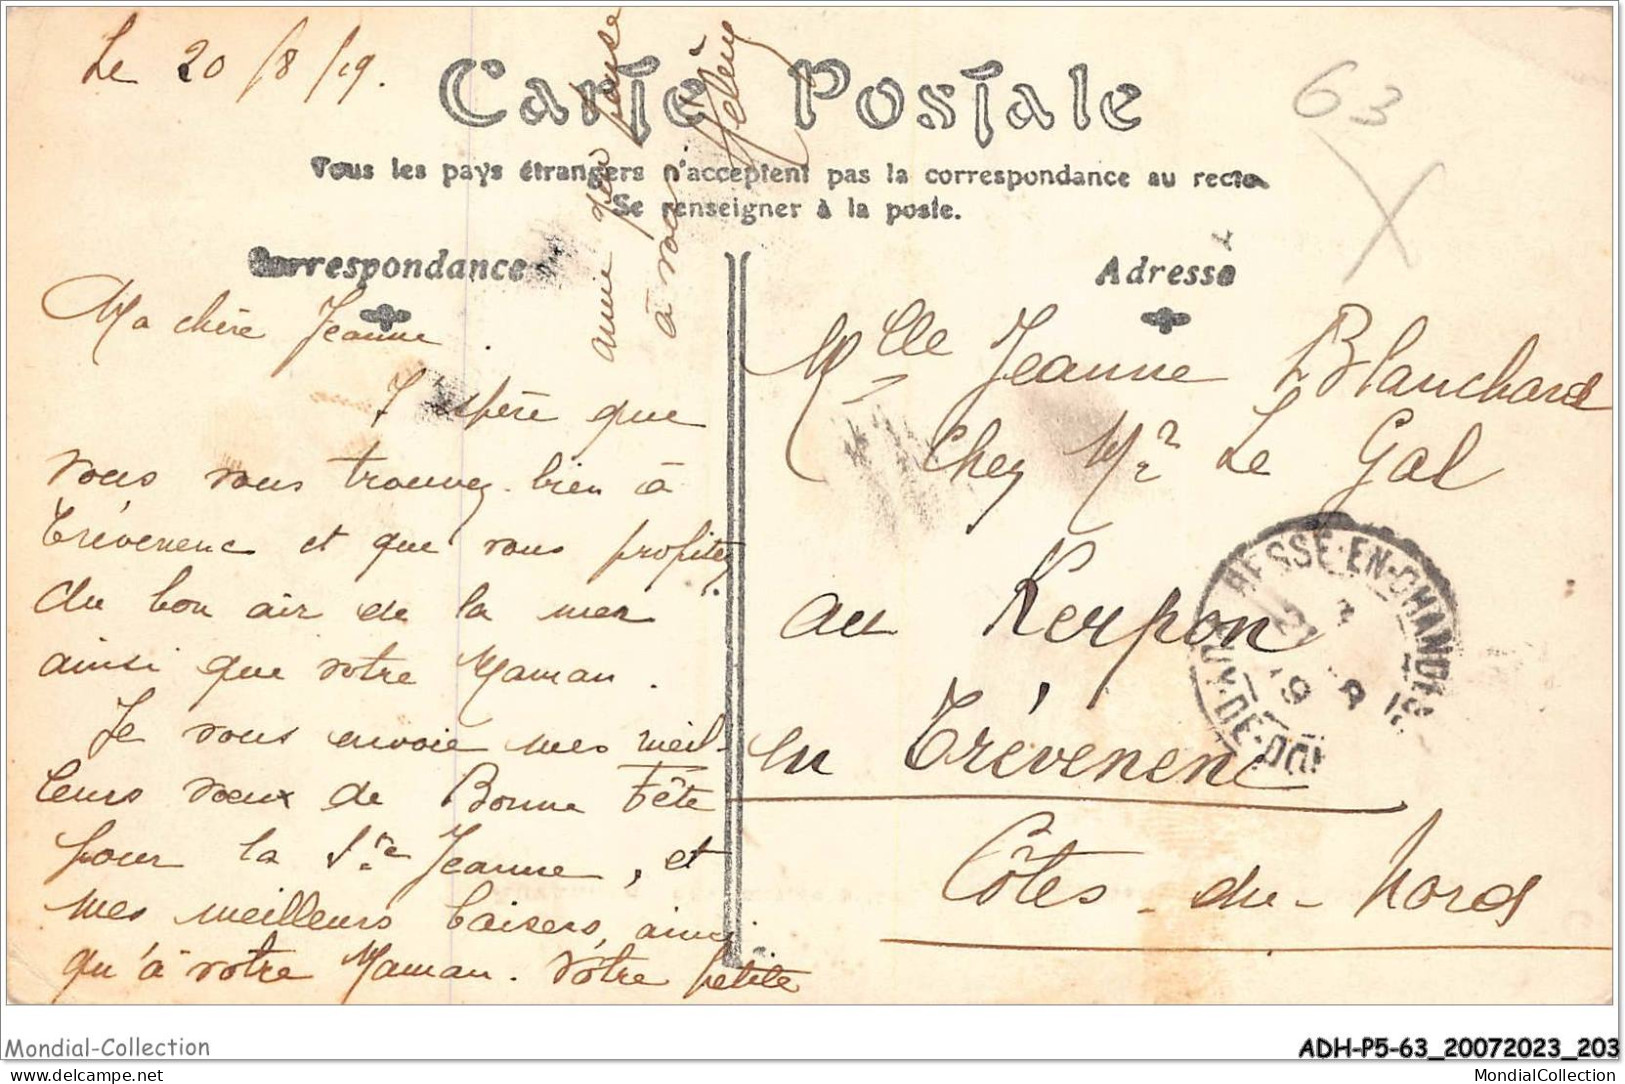 Le 20/8/19.
Carte Postale
63
Tous les pays étrangers n'acceptent pas la correspondance au recto
Se renseigner à la poste.
Correspondance
Adresse
Ma chère Jeanne.
J'espère que
vous vous trouvez bien à
Trévenenc et que vous profitez
du bon air de la mer
ainsi que votre Maman.
Je vous envoie mes meil-
leurs vœux de Bonne Fête
pour la Ste Jeanne, et
mes meilleurs baisers, ainsi
qu'à votre Maman. Votre petite
amie qui pense
à vous
Hélène
Mlle Jeanne Blanchard
Chez Mr Le Gal
au Kerpon
en Trévenenc
Côtes-du-Nord
BESSE-EN-CHANDESSE
PUY-DE-DOME
Mondial-Collection
ADH-P5-63_20072023_203
delcampe.net
MondialCollection